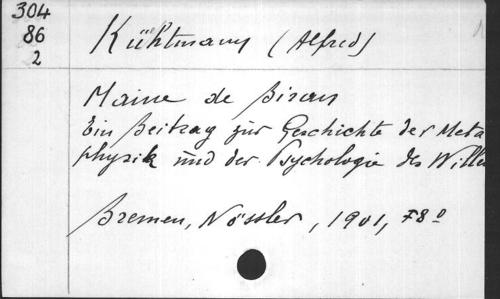 304
86
2
Kühtmann (Alfred)
Maine de Biran
Ein Beitrag zur Geschichte der Meta
physik und der Psychologie des Willen
Bremen, Nössler, 1901, 8º